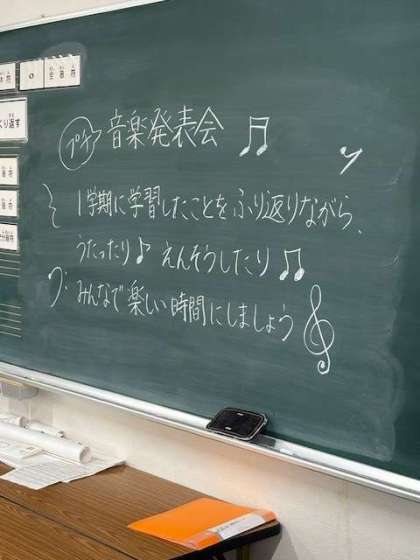 プチ 音楽発表会 ♬
1学期に学習したことをふり返りながら、
うたったり♪ えんそうしたり♫
みんなで楽しい時間にしましょう
全音符
くり返す